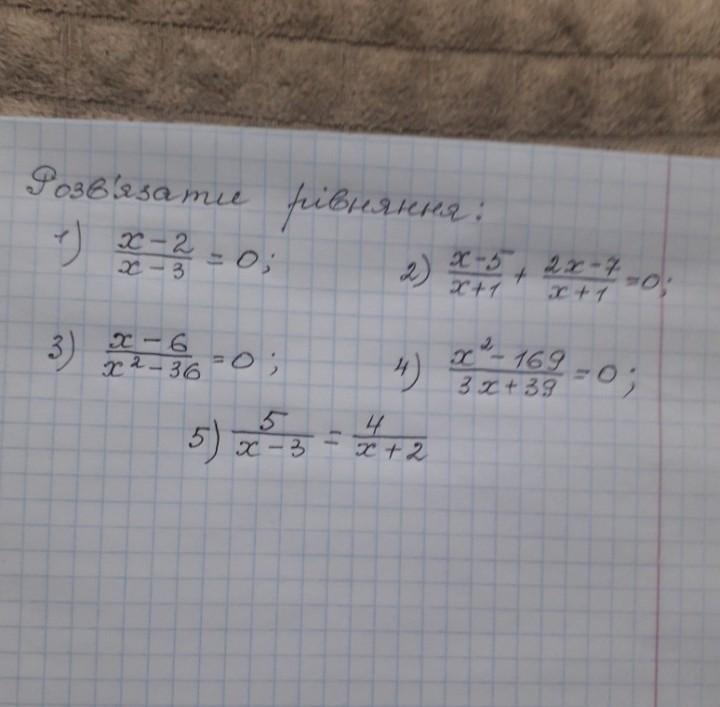 Розв'язати рівняння:
1) (x-2)/(x-3) = 0; 2) (x-5)/(x+1) + (2x-7)/(x+1) = 0;
3) (x-6)/(x²-36) = 0; 4) (x²-169)/(3x+39) = 0;
5) 5/(x-3) = 4/(x+2)